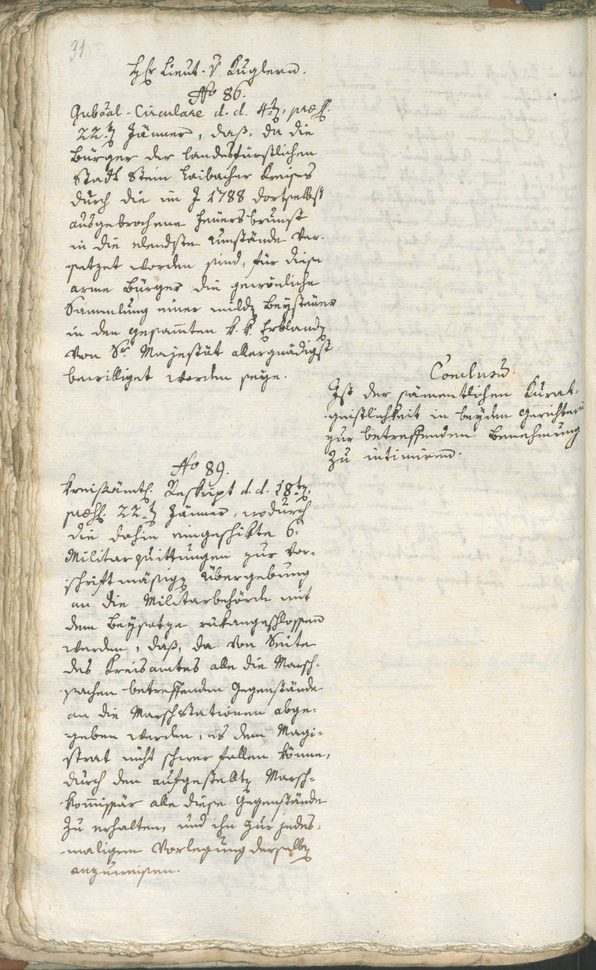 31
Hℓ: Lieut. v Kuglern.
No 86.
Gubȇal-Circulare d. d. 4t, præs.
22t Jänner, daß, da die
Bürger der landesfürstlichen
Stadt Stein Laibacher Kreises
durch die im J 1788 dortselbst
ausgebrochene Feuersbrunst
in die elendste Umstände ver-
setzet worden sind, für diese
arme Bürger die gewönliche
Sammlung einer mild Beysteuer
in den gesammten k. k. Erbland
von Sr Majestät allergnädigst
bewilliget worden seye.
Conclusũ.
Ist der säm̃entlichen Kurat-
geistlichkeit in beyden Gerichtern
zur betreffenden Benehmung
zu intimiren.
No 89.
Kreisämtl. Reskript d. d. 18t,
præs. 22t Jänner, wodurch
die dahin eingeschikte 6.
Militarquittungen zur vor-
schriftmäsig Übergebung
an die Militarbehörde mit
dem Beysatze rükangeschlossen
werden, daß, da von Seite
des Kreisamtes alle die Marsch-
sachen betreffenden Gegenstände
an die Marschstationen abge-
geben werden, es dem Magi-
strat nicht schwer fallen könne,
durch den aufgestellt Marsch-
kom̃issär alle diese Gegenstände
zu erhalten, und ihn zur jedes-
maligen Vorlegung derselb
anzuweisen.